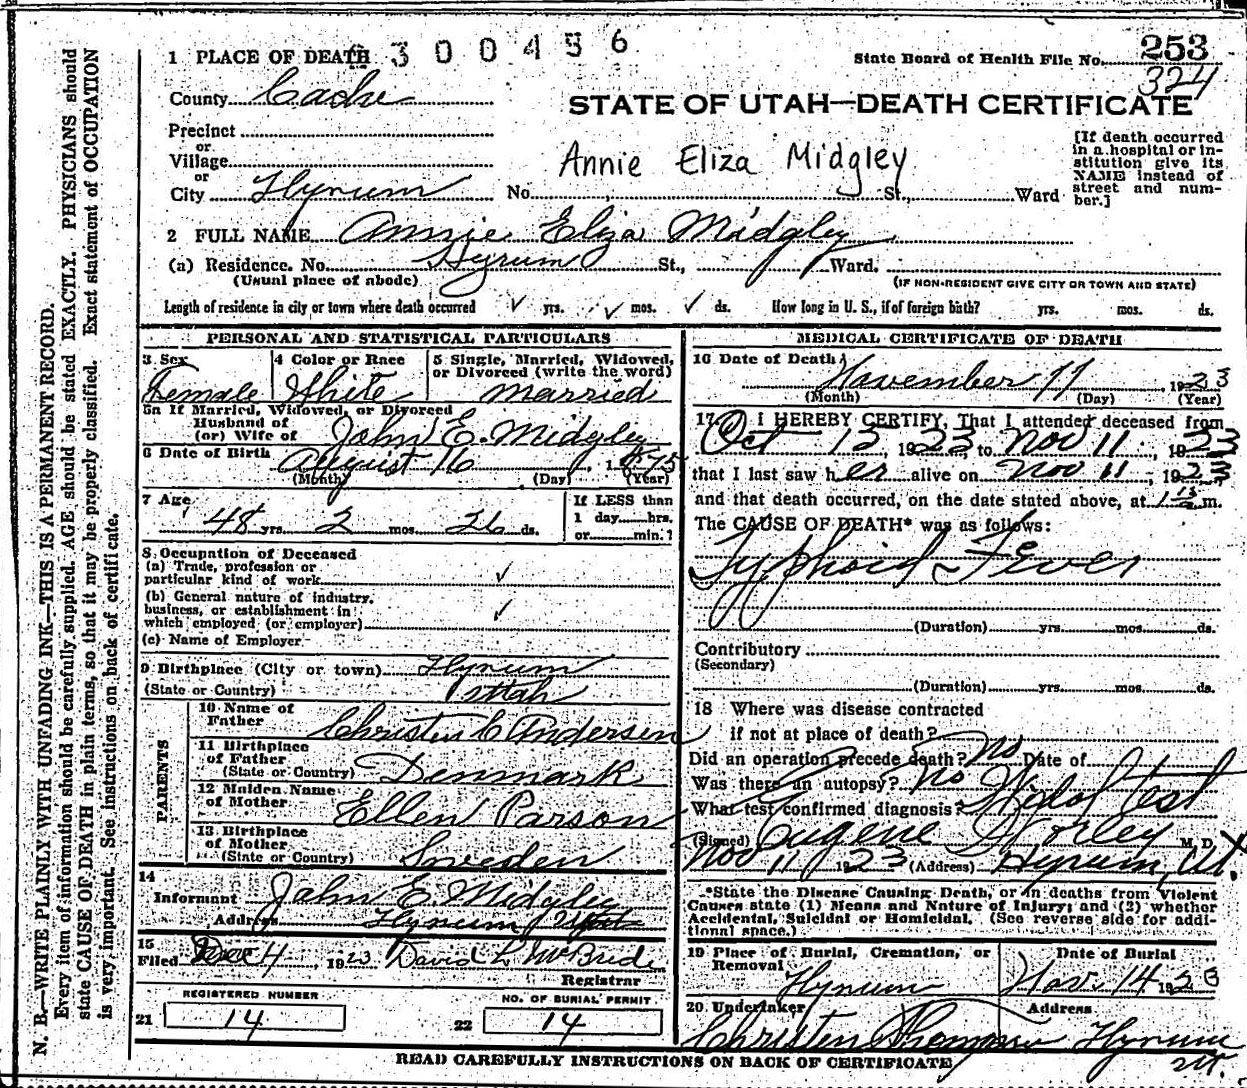 N. B.—WRITE PLAINLY WITH UNFADING INK—THIS IS A PERMANENT RECORD.
Every item of information should be carefully supplied. AGE should be stated EXACTLY. PHYSICIANS should
state CAUSE OF DEATH in plain terms, so that it may be properly classified. Exact statement of OCCUPATION
is very important. See instructions on back of certificate.
1 PLACE OF DEATH 300456
State Board of Health File No. 253
324
County Cache
STATE OF UTAH—DEATH CERTIFICATE
Precinct
or
Village
or
City Hyrum No. St., Ward
Annie Eliza Midgley
[If death occurred
in a hospital or in-
stitution give its
NAME instead of
street and num-
ber.]
2 FULL NAME Annie Eliza Midgley
(a) Residence. No. Hyrum St., Ward.
(Usual place of abode) (IF NON-RESIDENT GIVE CITY OR TOWN AND STATE)
Length of residence in city or town where death occurred ✓ yrs. ✓ mos. ✓ ds. How long in U. S., if of foreign birth? yrs. mos. ds.
PERSONAL AND STATISTICAL PARTICULARS
3 Sex
Female
4 Color or Race
White
5 Single, Married, Widowed,
or Divorced (write the word)
married
5a If Married, Widowed, or Divorced
Husband of
(or) Wife of John E. Midgley
6 Date of Birth August 16, 1875
(Month) (Day) (Year)
7 Age
48 yrs. 2 mos. 26 ds.
If LESS than
1 day hrs.
or min.?
8 Occupation of Deceased
(a) Trade, profession or
particular kind of work ✓
(b) General nature of industry,
business, or establishment in
which employed (or employer) ✓
(c) Name of Employer
9 Birthplace (City or town) Hyrum
(State or Country) Utah
PARENTS
10 Name of
Father Christen C Andersen
11 Birthplace
of Father
(State or Country) Denmark
12 Maiden Name
of Mother Ellen Parson
13 Birthplace
of Mother
(State or Country) Sweden
14
Informant John E. Midgley
Address Hyrum Utah
15
Filed Dec 4, 1923 David L McBride
Registrar
REGISTERED NUMBER
21 14
NO. OF BURIAL PERMIT
22 14
MEDICAL CERTIFICATE OF DEATH
16 Date of Death
November 11, 1923
(Month) (Day) (Year)
17 I HEREBY CERTIFY, That I attended deceased from
Oct 13, 1923 to Nov 11, 1923
that I last saw her alive on Nov 11, 1923
and that death occurred, on the date stated above, at m.
The CAUSE OF DEATH* was as follows:
Typhoid Fever
(Duration) yrs. mos. ds.
Contributory
(Secondary)
(Duration) yrs. mos. ds.
18 Where was disease contracted
if not at place of death?
Did an operation precede death? No Date of
Was there an autopsy? No
What test confirmed diagnosis? Widal Test
(Signed) Eugene Worley M. D.
Nov 11 1923 (Address) Hyrum, Ut.
*State the Disease Causing Death, or in deaths from Violent
Causes state (1) Means and Nature of Injury; and (2) whether
Accidental, Suicidal or Homicidal. (See reverse side for addi-
tional space.)
19 Place of Burial, Cremation, or
Removal
Hyrum
Date of Burial
Nov. 14 1923
20 Undertaker
Christen Thompson
Address
Hyrum
Ut.
READ CAREFULLY INSTRUCTIONS ON BACK OF CERTIFICATE